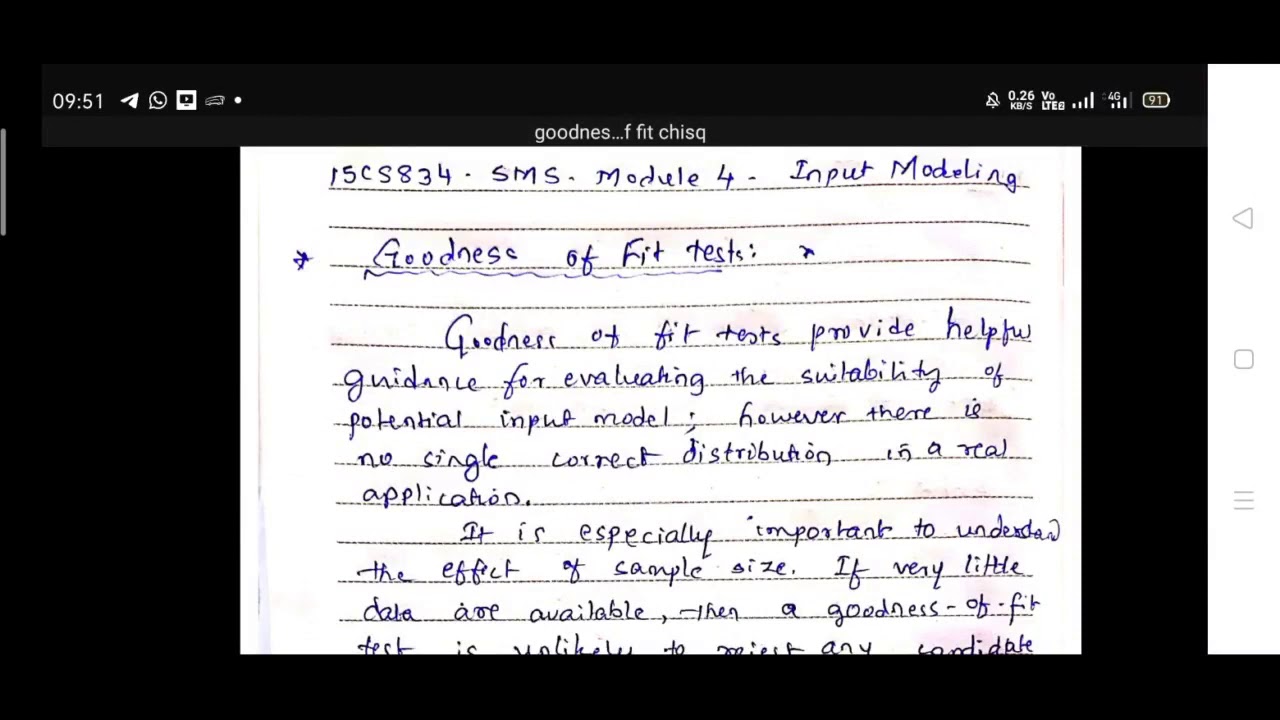 09:51
0.26 KB/S Vo LTE2 4G 91
goodnes...f fit chisq
15CS834. SMS. Module 4 - Input Modeling
* Goodness of Fit tests: *
Goodness of fit tests provide helpfu
guidance for evaluating the suitability of
potential input model; however there is
no single correct distribution in a real
application.
It is especially important to understand
the effect of sample size. If very little
data are available, then a goodness-of-fit
test is unlikely to reject any candidate